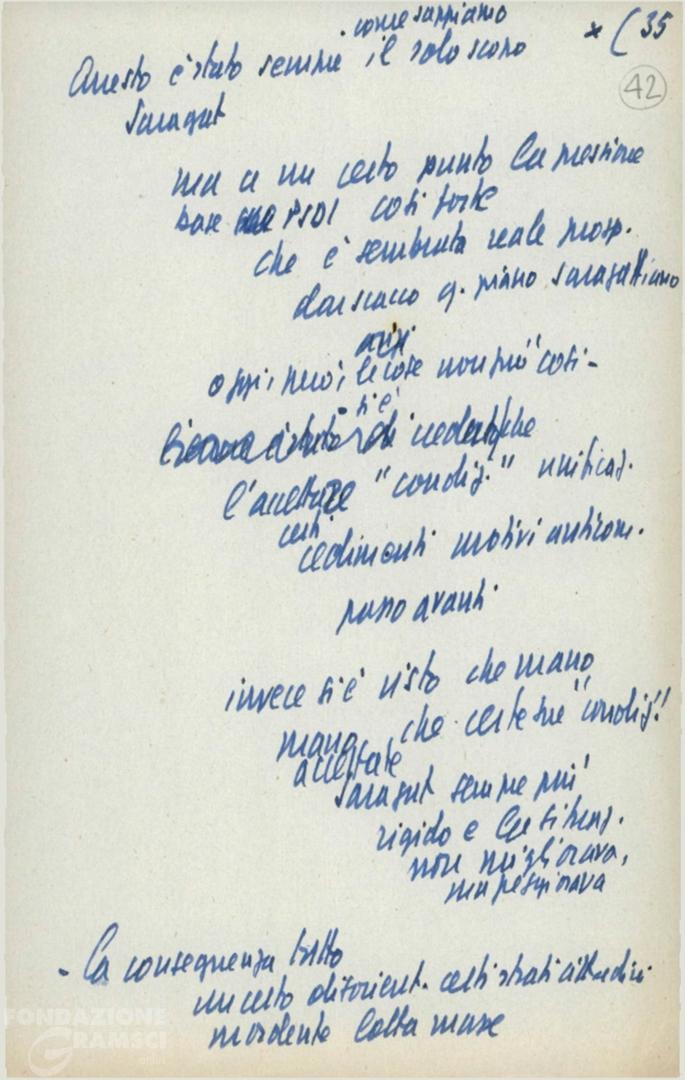 come sappiamo
* ( 35
42
Questo è stato sempre il solo scopo
Saragat
ma a un certo punto la pressione
base PSDI così forte
che è sembrata reale prosp.
dar scacco q. piano saragattiano
oggi, però, le cose non più così -
si è
di creduto che
l'accettare "condiz." unificaz.
certi
cedimenti motivi anticom.
passo avanti
invece si è visto che mano
mano che certe sue "condiz."
accettate
Saragat sempre più
rigido e la situaz.
non migliorava,
ma peggiorava
- la conseguenza tutto
un certo disorient. certi strati cittadini
mordente lotta masse
FONDAZIONE
GRAMSCI